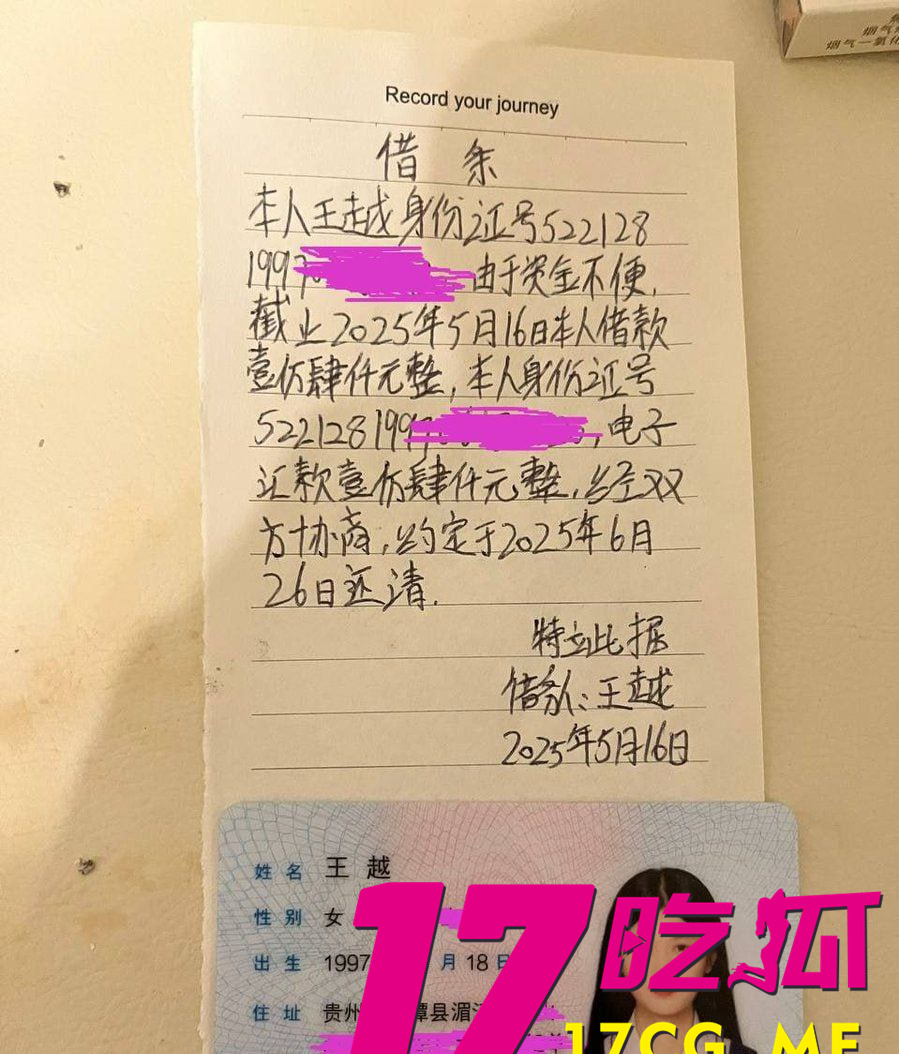 烟气
烟气一氧化
Record your journey
借 条
本人王越身份证号522128
1997 由于资金不便,
截止2025年5月16日本人借款
壹仿肆仟元整,本人身份证号
5221281997 ,电子
汇款壹仿肆仟元整,经双
方协商,约定于2025年6月
26日还清.
特立此据
借条人:王越
2025年5月16日
姓名 王越
性别 女
出生 1997 月 18 日
住址 贵州 潭县湄
17吃狐
17CG.ME